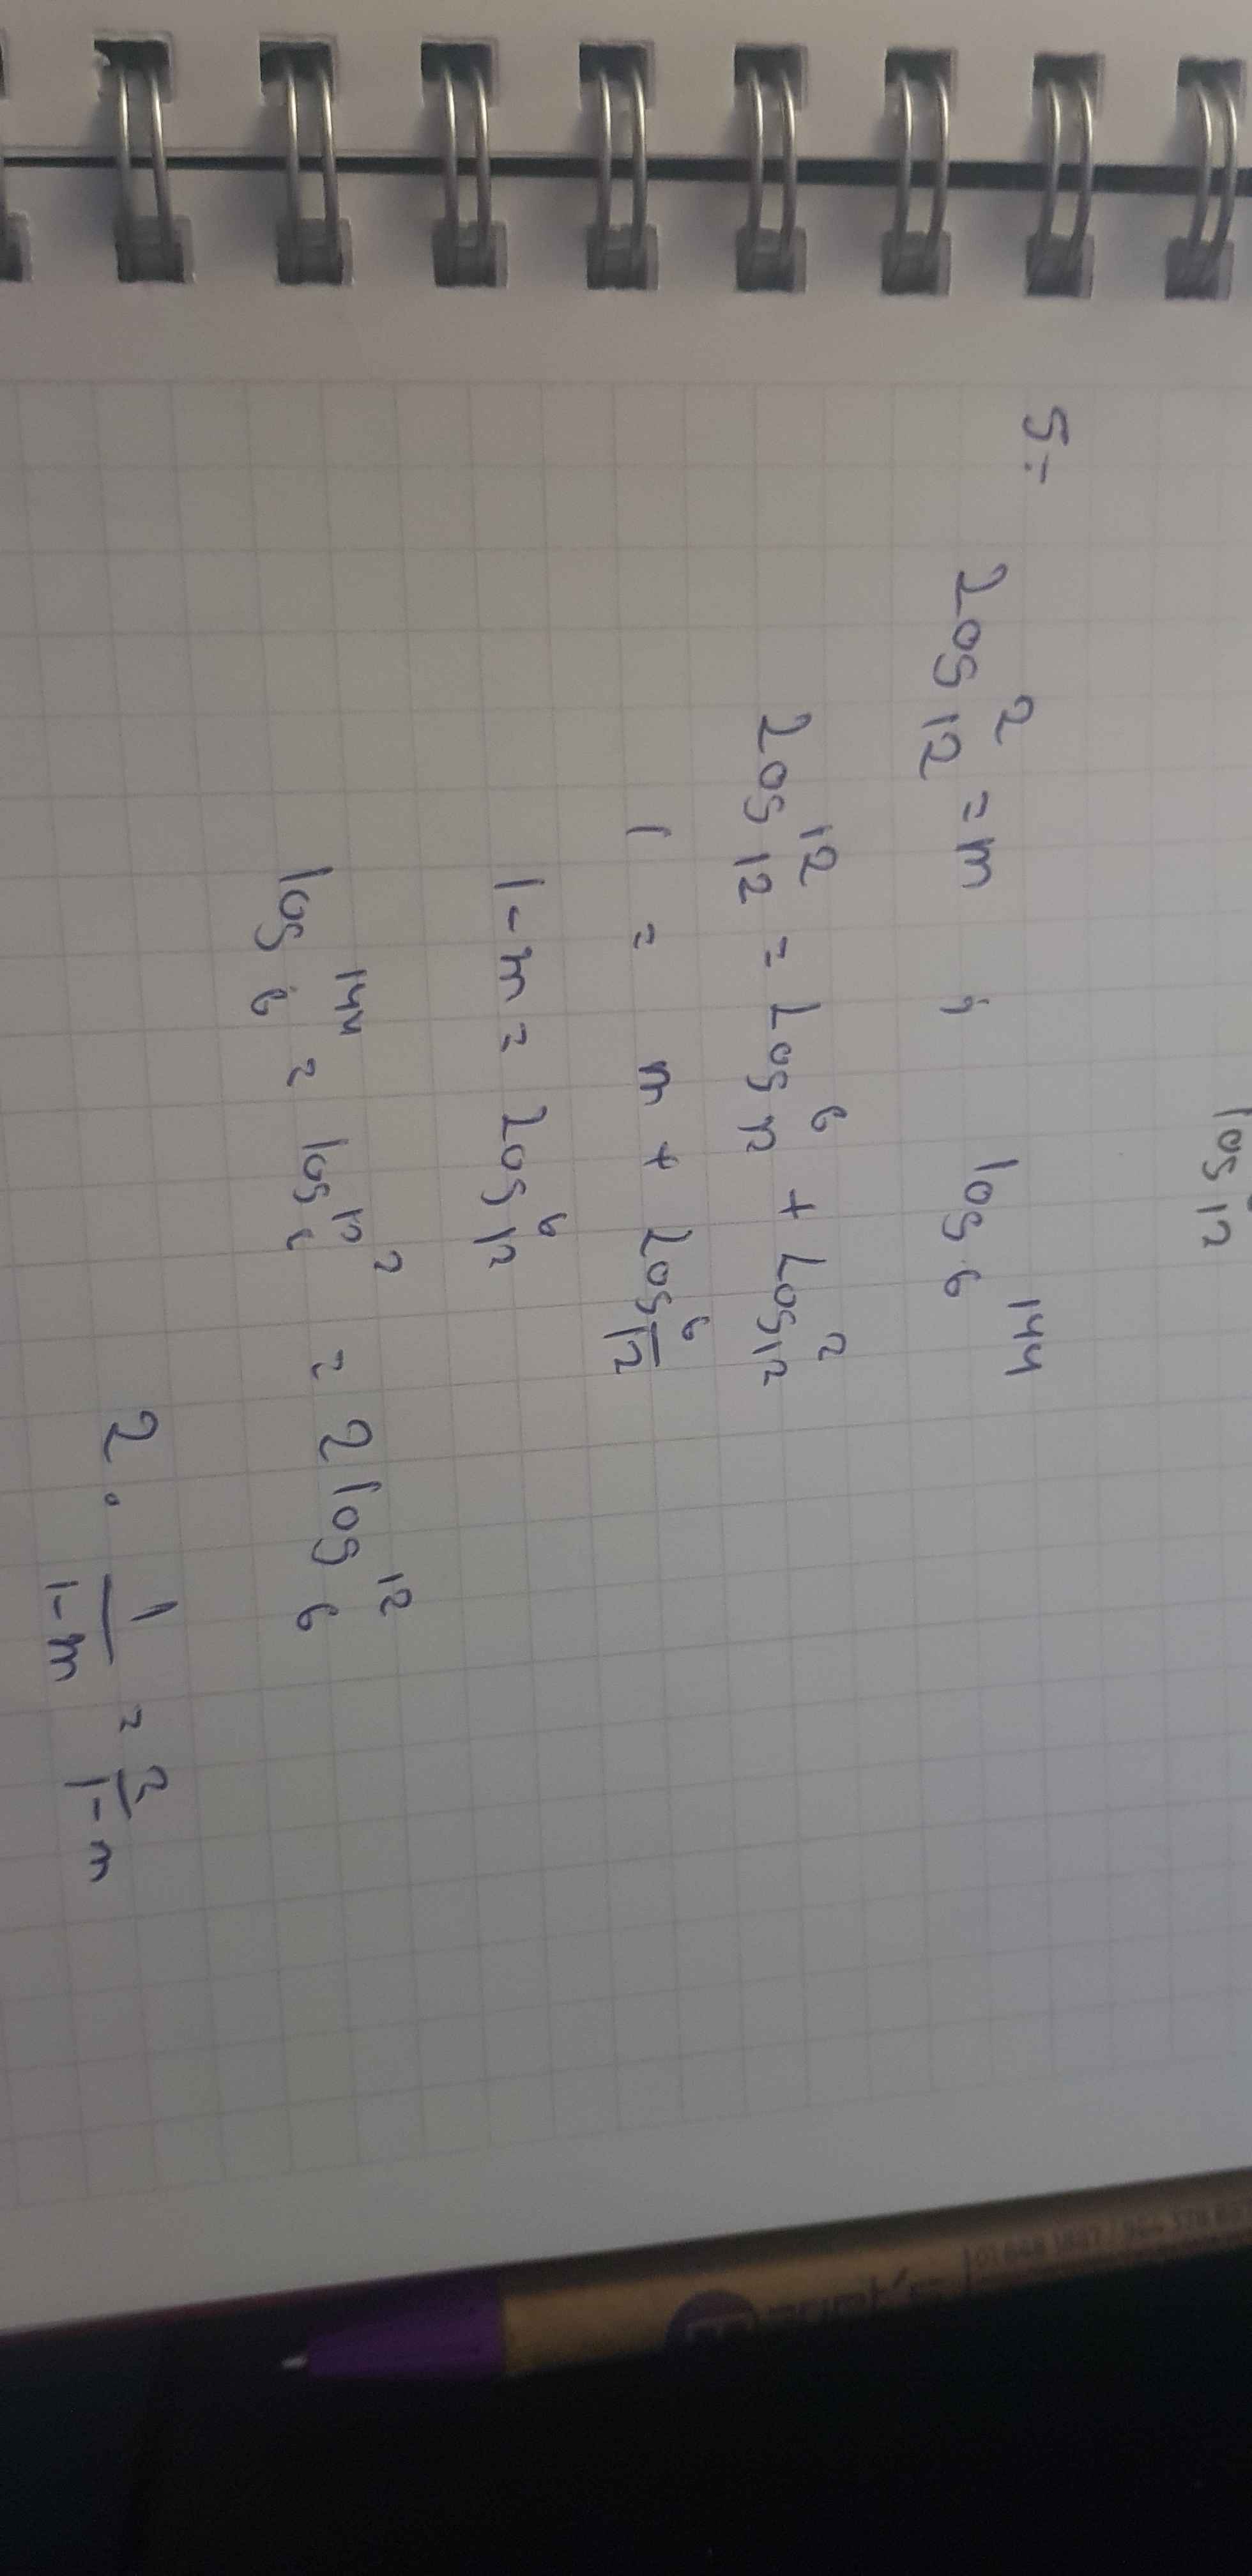 log 12
5-
Log₁₂² = m ; log₆¹⁴⁴
Log₁₂¹² = Log₁₂⁶ + Log₁₂²
1 = m + Log 6/12
1-m = Log₁₂⁶
log₆¹⁴⁴ = log₆12² = 2 log₆¹²
2 · 1/1-m = 2/1-m